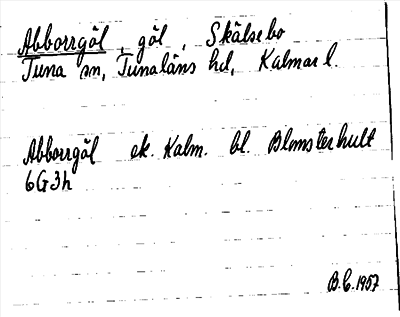 Abborrgöl, göl, Skälsebo
Tuna sn, Tunaläns hd, Kalmar l.
Abborrgöl ek. Kalm. bl. Blomsterhult
6G3h
B.C. 1957